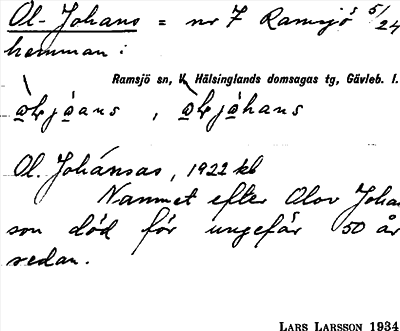 Ol-Johans = nr 7 Ramsjö s 5/24
hemman:
Ramsjö sn, V. Hälsinglands domsagas tg, Gävleb. l.
Ol. Johánsas, 1922 kb
Namnet efter Olov Joha
son död för ungefär 50 år
sedan.
LARS LARSSON 1934